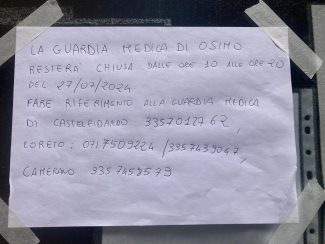 LA GUARDIA MEDICA DI OSIMO
RESTERA' CHIUSA DALLE ORE 10 ALLE ORE 20
DEL 27/07/2024.
FARE RIFERIMENTO ALLA GUARDIA MEDICA
DI CASTELFIDARDO 3357012762,
LORETO: 0717509224 /3357439047,
CAMERANO 3357459579